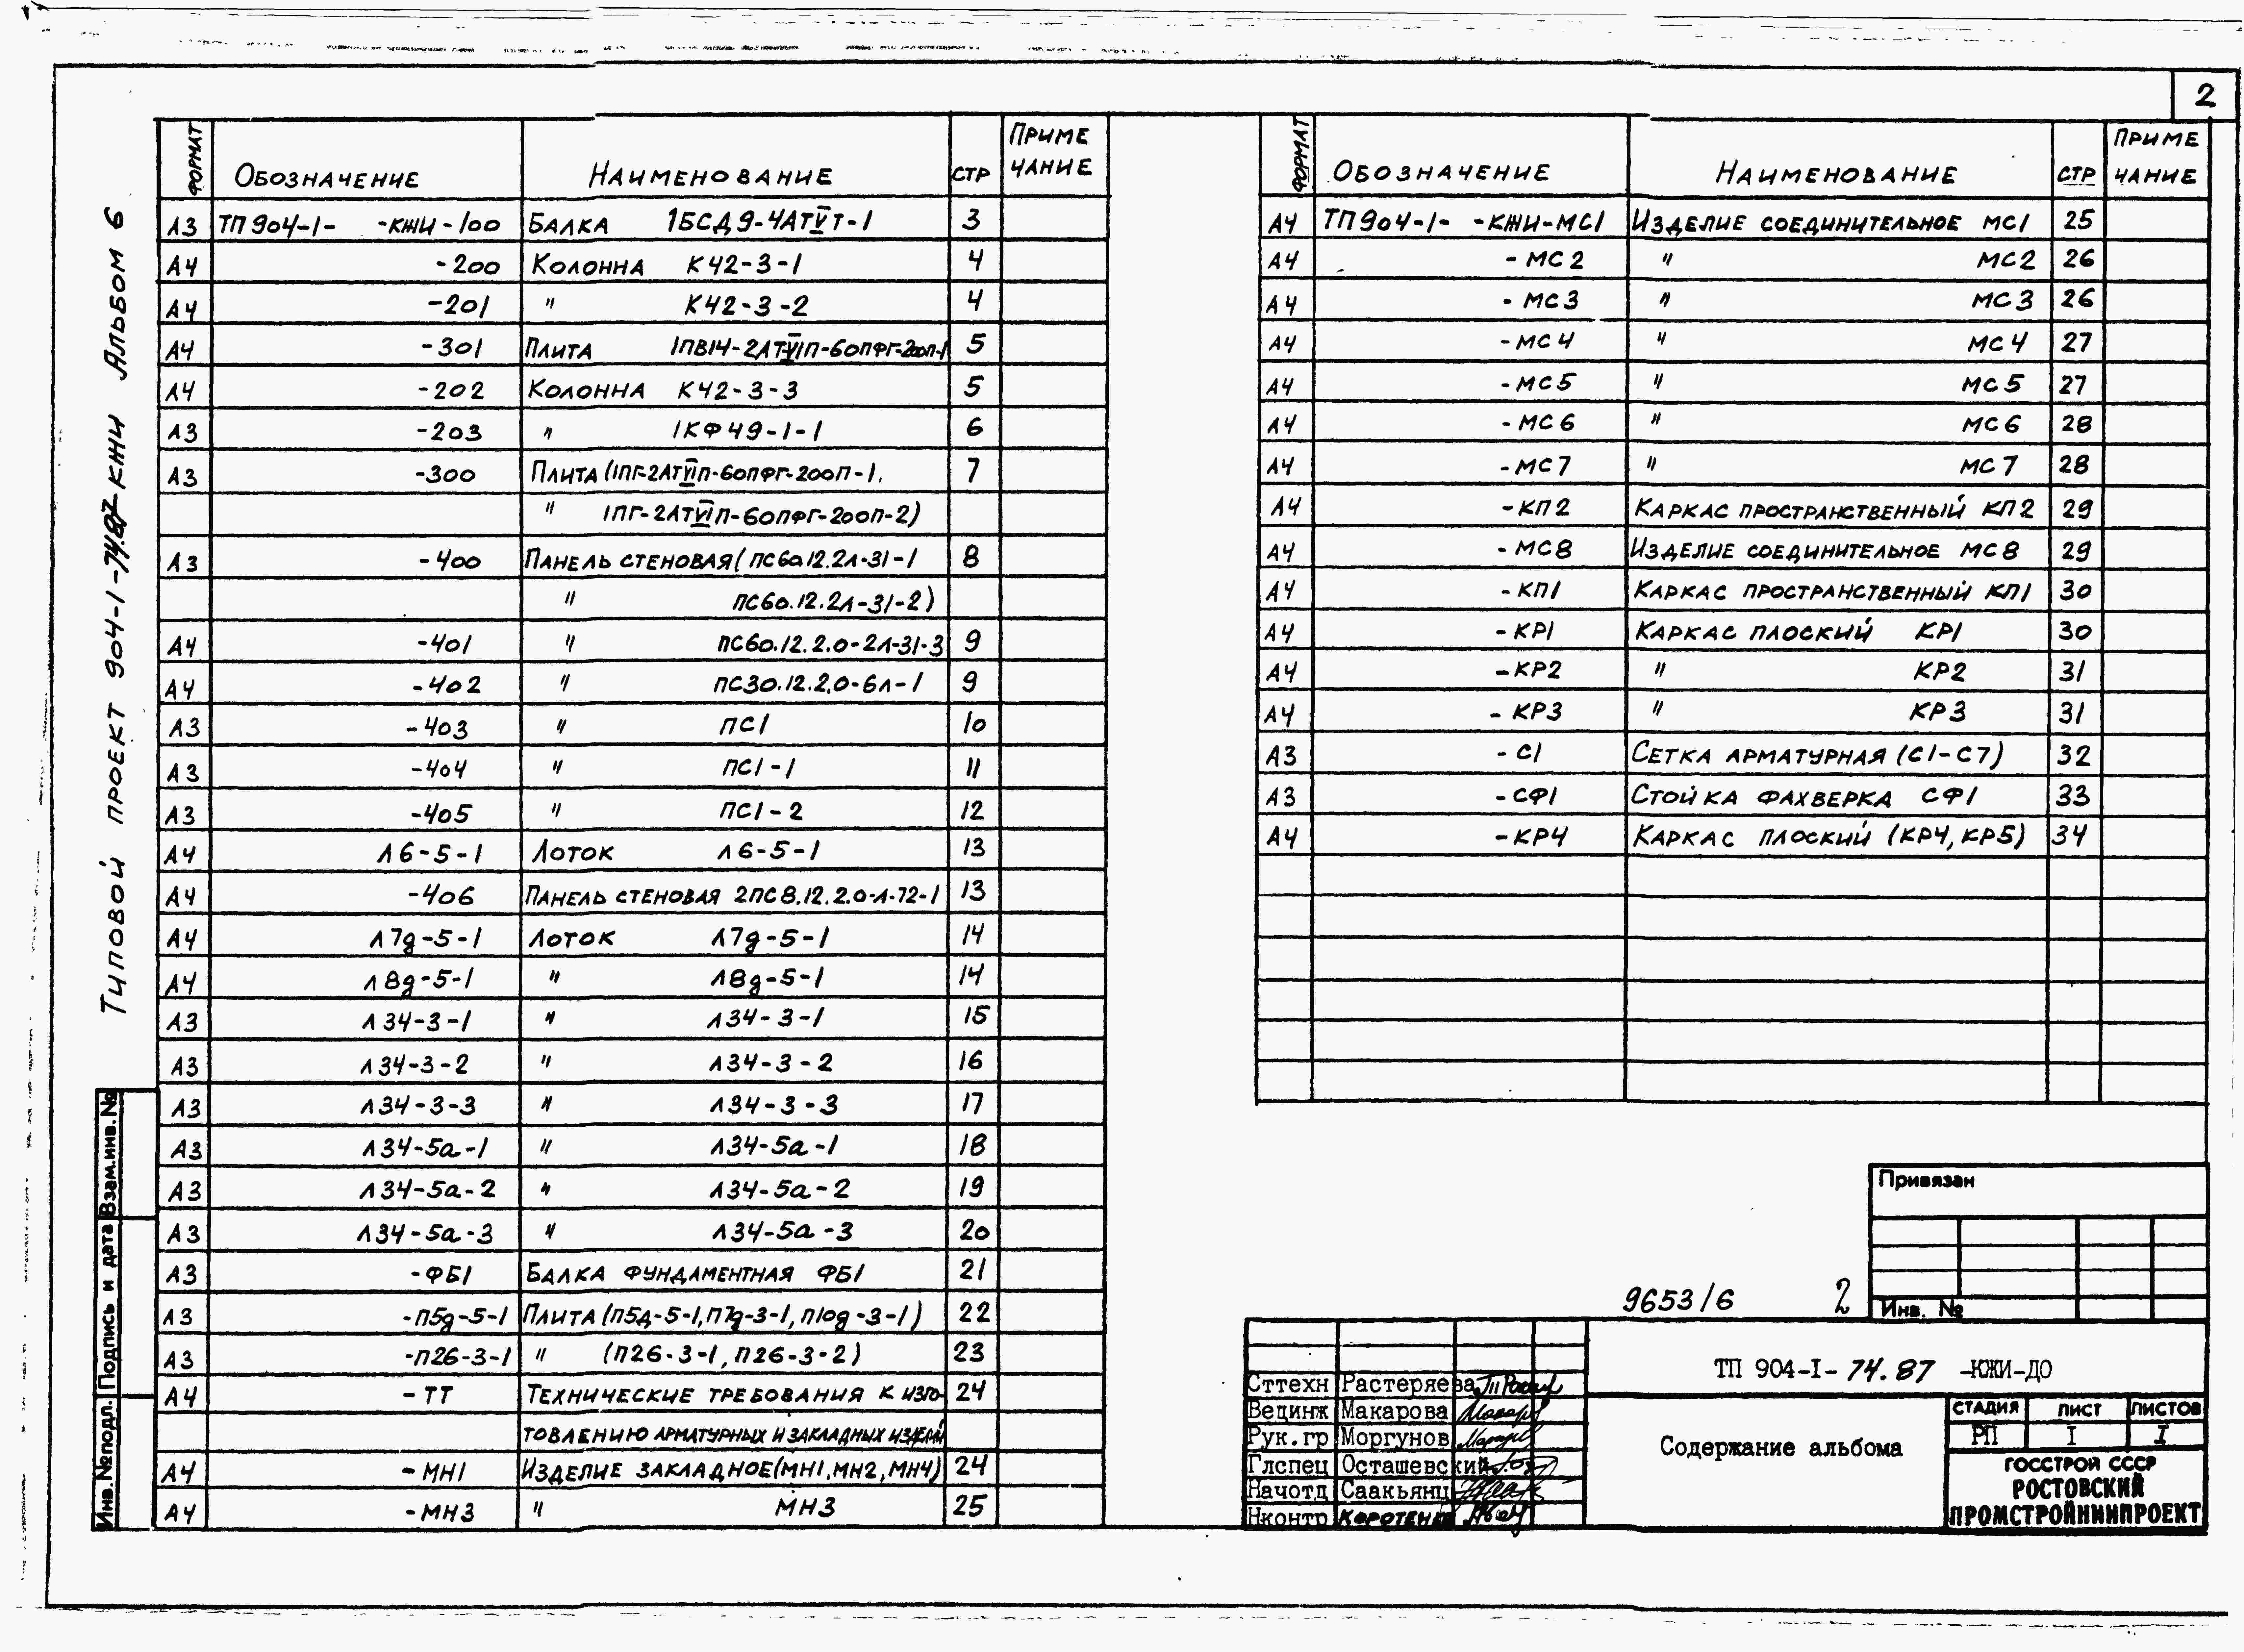 2
Типовой проект 904-1-74.87 КЖИ Альбом 6
ФОРМАТ ОБОЗНАЧЕНИЕ НАИМЕНОВАНИЕ СТР ПРИМЕ
ЧАНИЕ
А3 ТП904-1- -КЖИ-100 БАЛКА 1БСД9-4АТV̅Т-1 3
А4 -200 КОЛОННА К42-3-1 4
А4 -201 " К42-3-2 4
А4 -301 ПЛИТА 1ПВ14-2АТVIП-60ПФГ-200П-1 5
А4 -202 КОЛОННА К42-3-3 5
А3 -203 " 1КФ49-1-1 6
А3 -300 ПЛИТА (1ПГ-2АТVIП-60ПФГ-200П-1, 7
" 1ПГ-2АТVIП-60ПФГ-200П-2)
А3 -400 ПАНЕЛЬ СТЕНОВАЯ (ПС60.12.2Л-31-1 8
" ПС60.12.2Л-31-2)
А4 -401 " ПС60.12.2.0-2Л-31-3 9
А4 -402 " ПС30.12.2.0-6Л-1 9
А3 -403 " ПС1 10
А3 -404 " ПС1-1 11
А3 -405 " ПС1-2 12
А4 Л6-5-1 ЛОТОК Л6-5-1 13
А4 -406 ПАНЕЛЬ СТЕНОВАЯ 2ПС8.12.2.0-Л-72-1 13
А4 Л7д-5-1 ЛОТОК Л7д-5-1 14
А4 Л8д-5-1 " Л8д-5-1 14
А3 Л34-3-1 " Л34-3-1 15
А3 Л34-3-2 " Л34-3-2 16
А3 Л34-3-3 " Л34-3-3 17
А3 Л34-5а-1 " Л34-5а-1 18
А3 Л34-5а-2 " Л34-5а-2 19
А3 Л34-5а-3 " Л34-5а-3 20
А3 -ФБ1 БАЛКА ФУНДАМЕНТНАЯ ФБ1 21
А3 -П5д-5-1 ПЛИТА (П5д-5-1, П7д-3-1, П10д-3-1) 22
А3 -П26-3-1 " (П26-3-1, П26-3-2) 23
А4 -ТТ ТЕХНИЧЕСКИЕ ТРЕБОВАНИЯ К ИЗГО- 24
ТОВЛЕНИЮ АРМАТУРНЫХ И ЗАКЛАДНЫХ ИЗДЕЛИЙ
А4 -МН1 ИЗДЕЛИЕ ЗАКЛАДНОЕ (МН1, МН2, МН4) 24
А4 -МН3 " МН3 25
ФОРМАТ ОБОЗНАЧЕНИЕ НАИМЕНОВАНИЕ СТР ПРИМЕ
ЧАНИЕ
А4 ТП904-1- -КЖИ-МС1 ИЗДЕЛИЕ СОЕДИНИТЕЛЬНОЕ МС1 25
А4 -МС2 " МС2 26
А4 -МС3 " МС3 26
А4 -МС4 " МС4 27
А4 -МС5 " МС5 27
А4 -МС6 " МС6 28
А4 -МС7 " МС7 28
А4 -КП2 КАРКАС ПРОСТРАНСТВЕННЫЙ КП2 29
А4 -МС8 ИЗДЕЛИЕ СОЕДИНИТЕЛЬНОЕ МС8 29
А4 -КП1 КАРКАС ПРОСТРАНСТВЕННЫЙ КП1 30
А4 -КР1 КАРКАС ПЛОСКИЙ КР1 30
А4 -КР2 " КР2 31
А4 -КР3 " КР3 31
А3 -С1 СЕТКА АРМАТУРНАЯ (С1-С7) 32
А3 -СФ1 СТОЙКА ФАХВЕРКА СФ1 33
А4 -КР4 КАРКАС ПЛОСКИЙ (КР4, КР5) 34
Взам.инв.№
Подпись и дата
Инв.№подл.
Привязан
Инв. №
9653/6 2
ТП 904-I-74.87 -КЖИ-ДО
Сттехн Растеряева
Вединж Макарова
Рук.гр Моргунов
Глспец Осташевский
Начотд Саакьянц
Нконтр
Содержание альбома
СТАДИЯ ЛИСТ ЛИСТОВ
РП I I
ГОССТРОЙ СССР
РОСТОВСКИЙ
ПРОМСТРОЙНИИПРОЕКТ